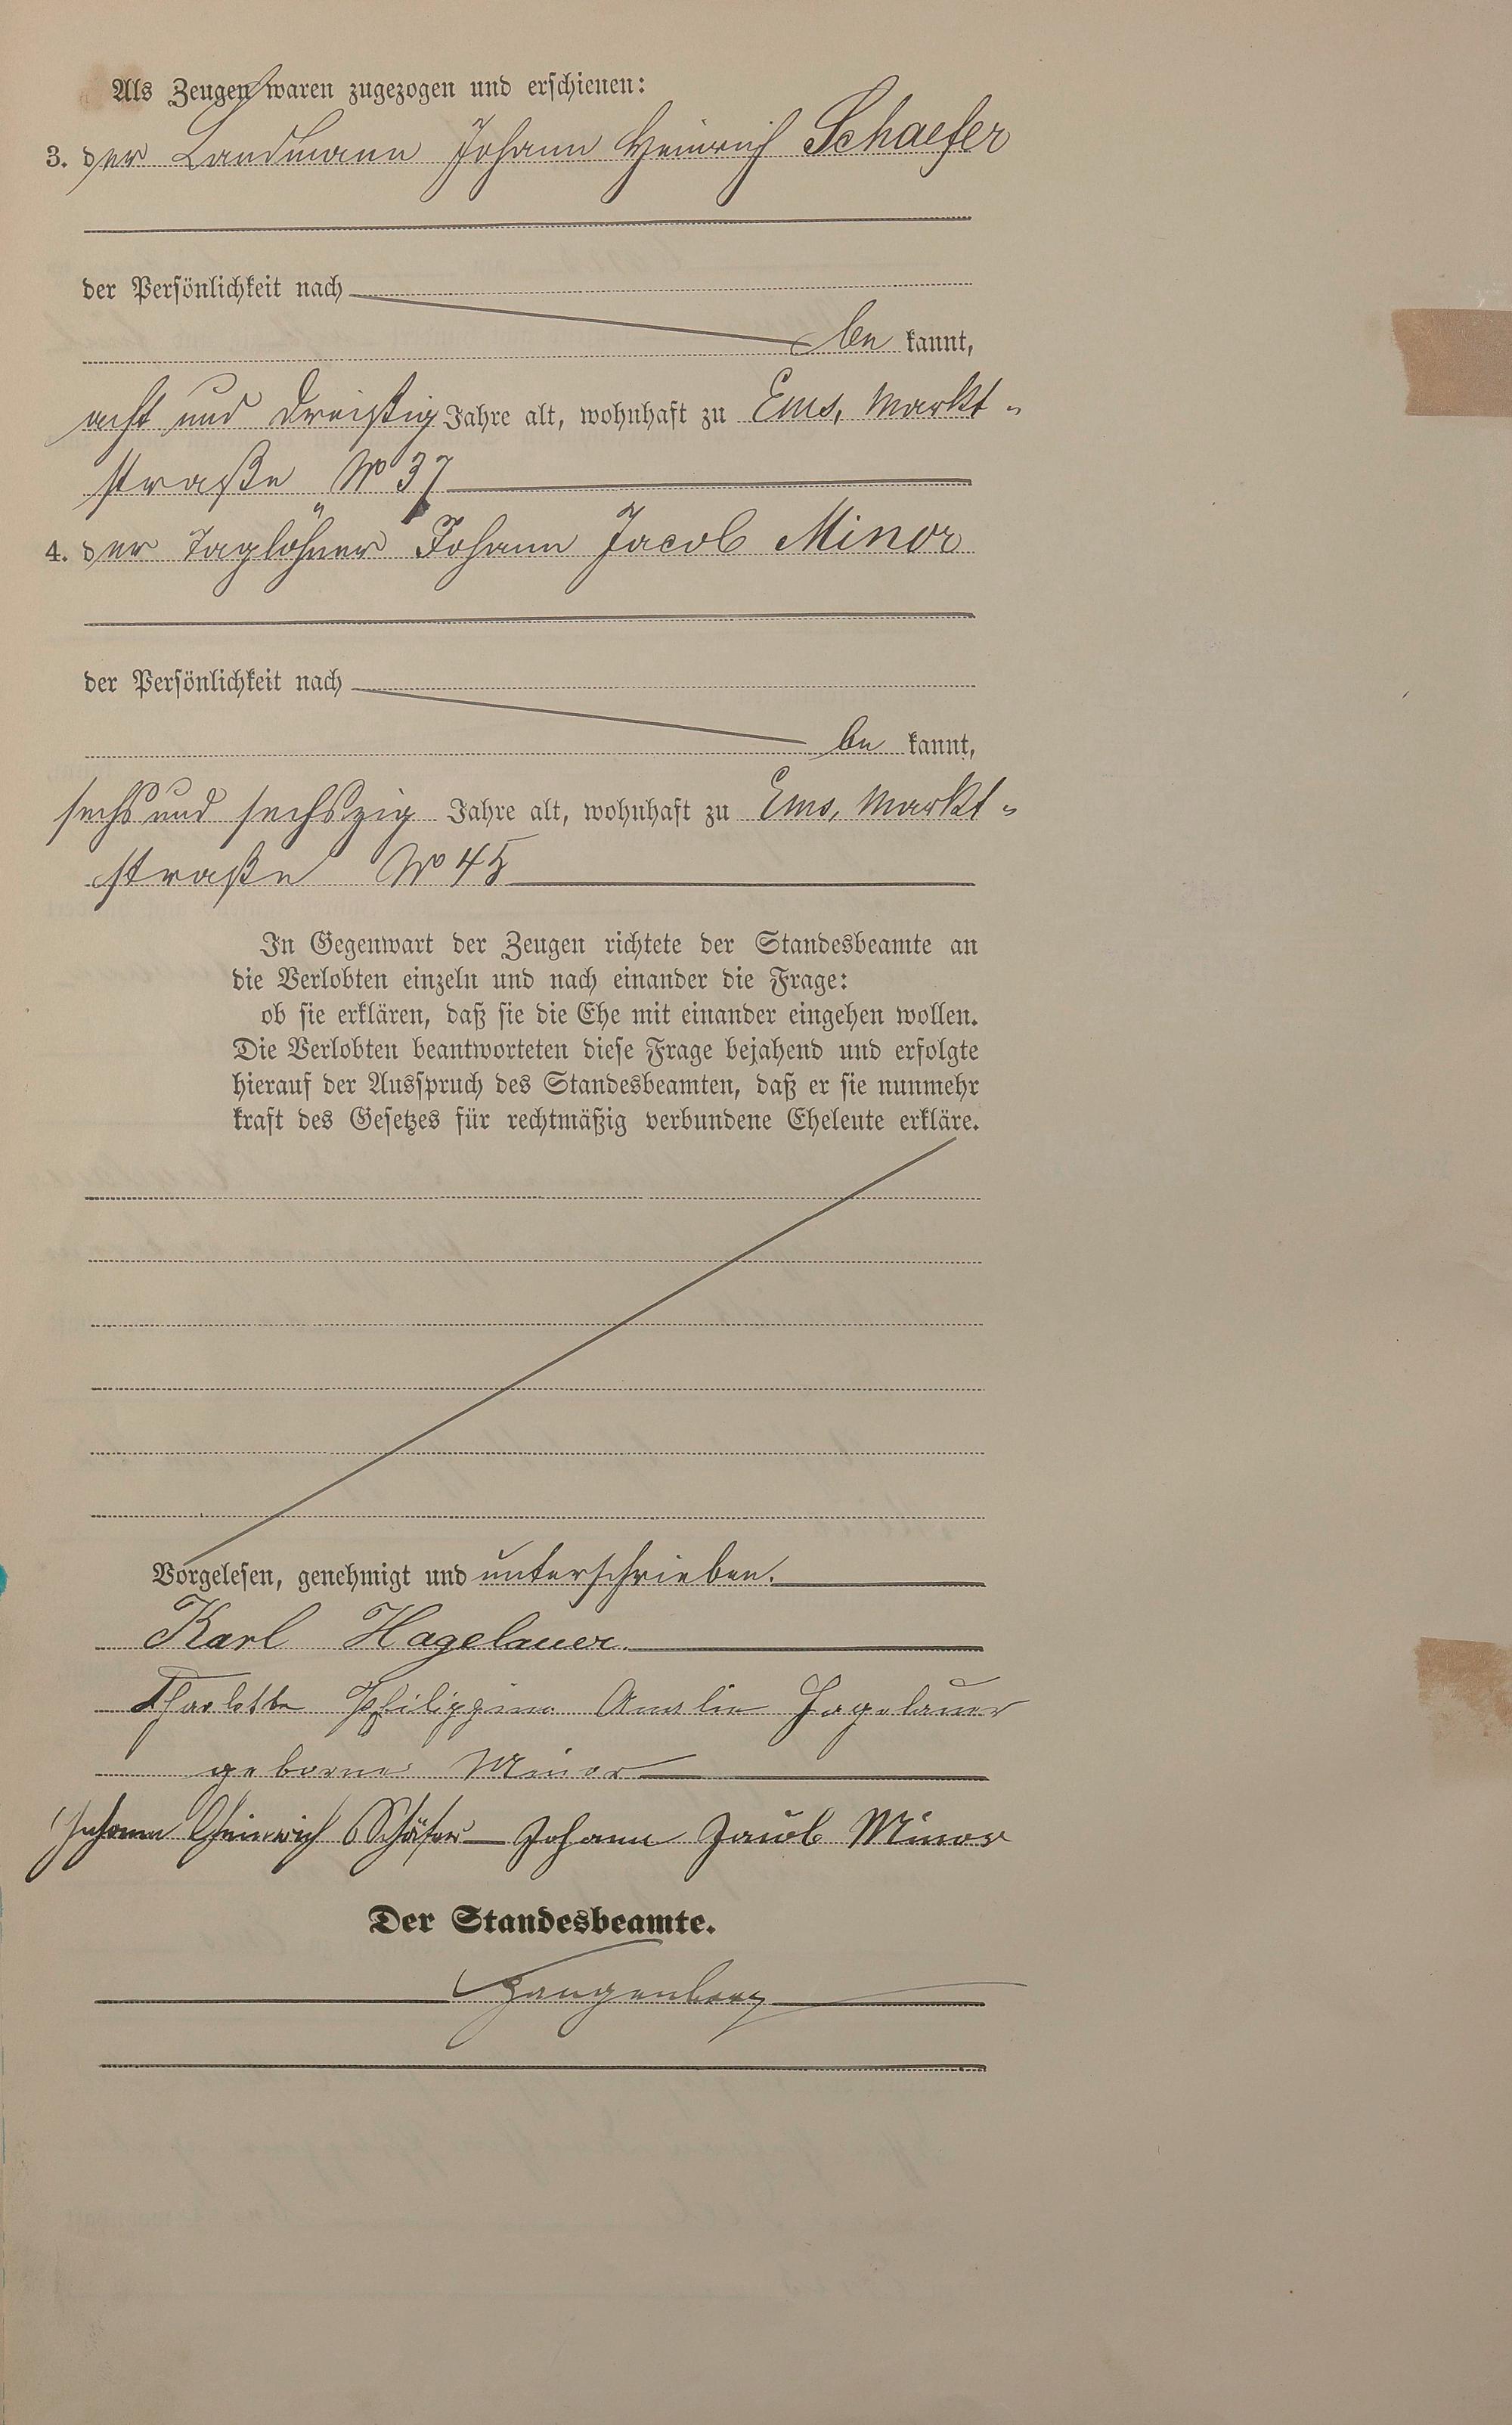 Als Zeugen waren zugezogen und erschienen:
3. der Landmann Johann Heinrich Schaefer
der Persönlichkeit nach
be kannt,
acht und dreißig Jahre alt, wohnhaft zu Ems, Markt-
straße No 37
4. der Taglöhner Johann Jacob Minor
der Persönlichkeit nach
be kannt,
sechs und sechszig Jahre alt, wohnhaft zu Ems, Markt-
straße No 45
In Gegenwart der Zeugen richtete der Standesbeamte an
die Verlobten einzeln und nach einander die Frage:
ob sie erklären, daß sie die Ehe mit einander eingehen wollen.
Die Verlobten beantworteten diese Frage bejahend und erfolgte
hierauf der Ausspruch des Standesbeamten, daß er sie nunmehr
kraft des Gesetzes für rechtmäßig verbundene Eheleute erkläre.
Vorgelesen, genehmigt und unterschrieben.
Karl Hagelauer.
Charlotte Philippine Amalie Hagelauer
geborne Minor
Johann Heinrich Schäfer Johann Jacob Minor
Der Standesbeamte.